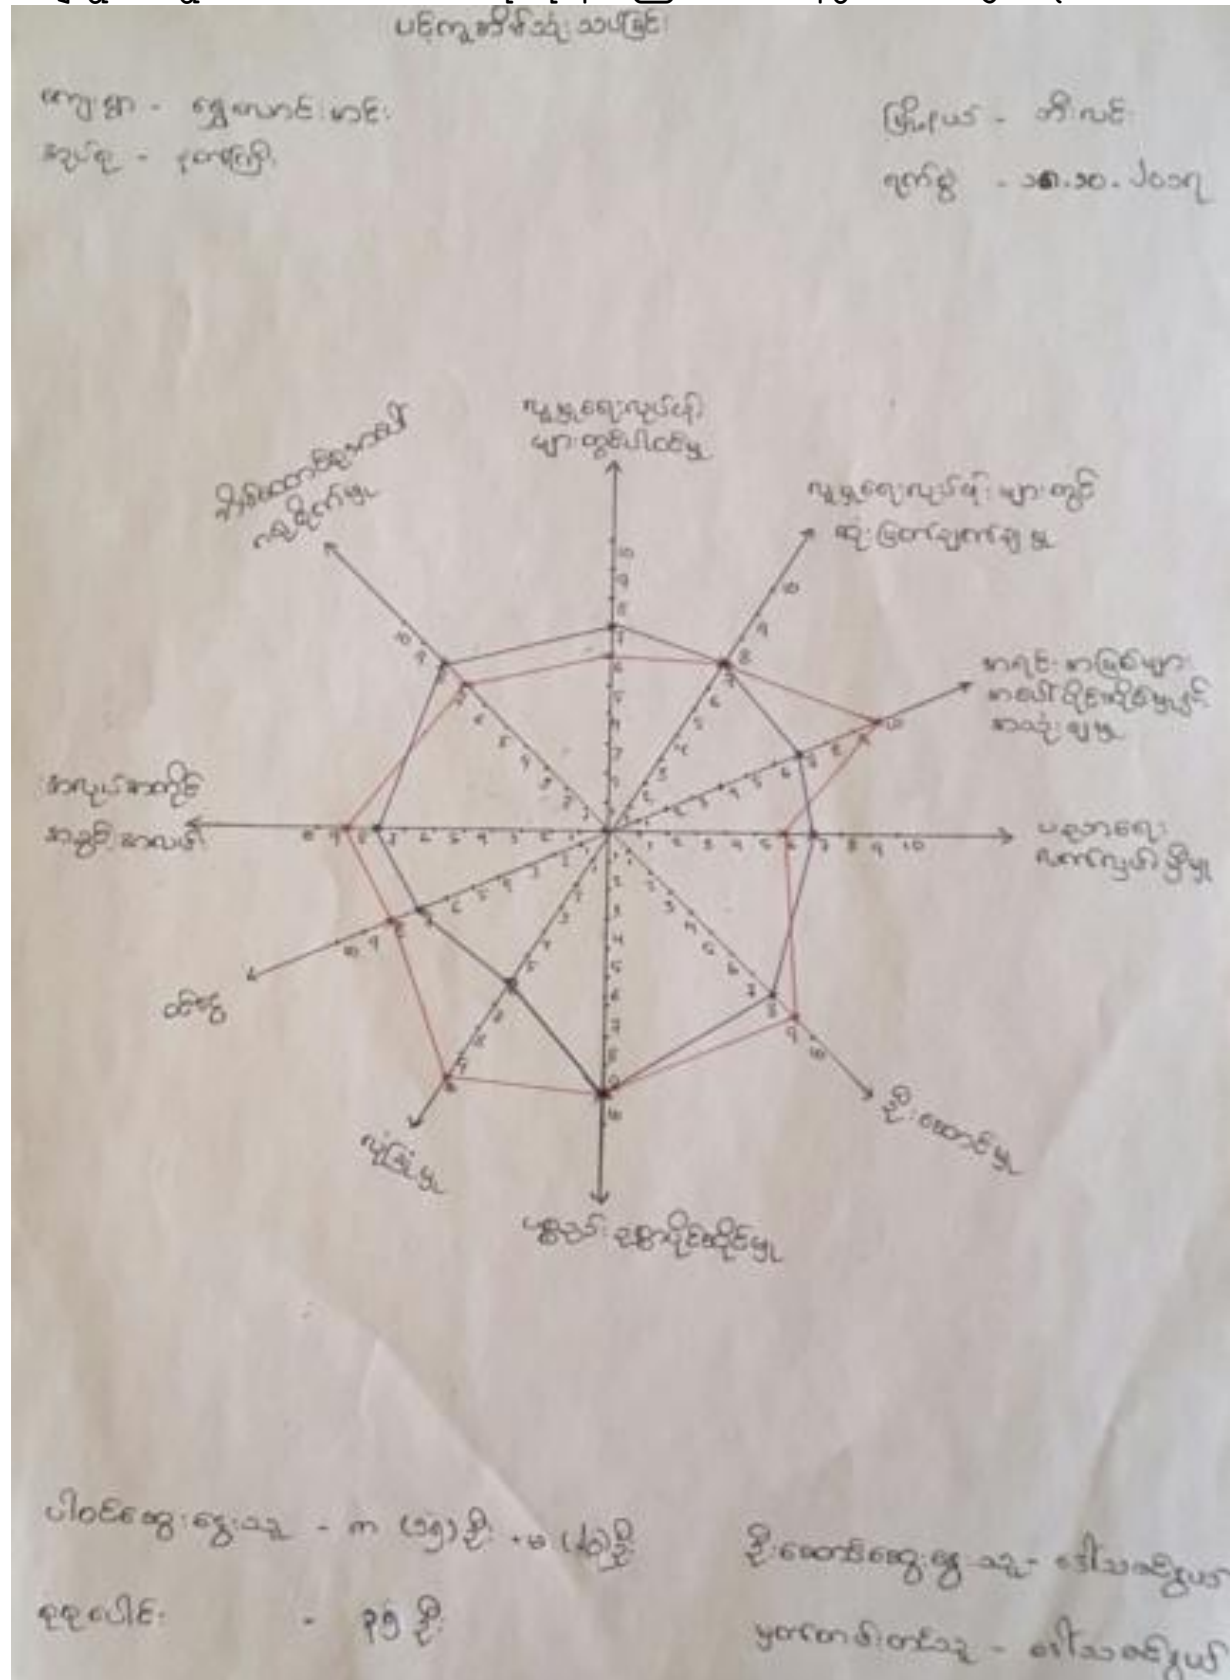 ပင့်ကူအိမ်သုံးသပ်ခြင်း
ကျေးရွာ - ရွှေလောင်းတင်း
အုပ်စု -
မြို့နယ် - ဘီးလင်း
ရက်စွဲ - .၁၀.၂၀၁၇
လူမှုရေးလုပ်ငန်း
များတွင်ပါဝင်မှု
လူမှုရေးလုပ်ငန်းများတွင်
ဆုံးဖြတ်ချက်ချမှု
အရင်းအမြစ်များ
အပေါ်ပိုင်ဆိုင်မှုနှင့်
အသုံးချမှု
ပညာရေး
လက်လှမ်းမှီမှု
ဦးဆောင်မှု
ပစ္စည်းဥစ္စာပိုင်ဆိုင်မှု
လုံခြုံမှု
ဝင်ငွေ
အလုပ်အကိုင်
အခွင့်အလမ်း
အိမ်ထောင်စုအပေါ်
ဂရုစိုက်မှု
ပါဝင်ဆွေးနွေးသူ - က (၁၅) ဦး + မ (၂၀) ဦး
စုစုပေါင်း - ၃၅ ဦး
ဦးဆောင်ဆွေးနွေးသူ - ဒေါ်သင်းနွယ်
မှတ်တမ်းတင်သူ - ဒေါ်သင်းနွယ်